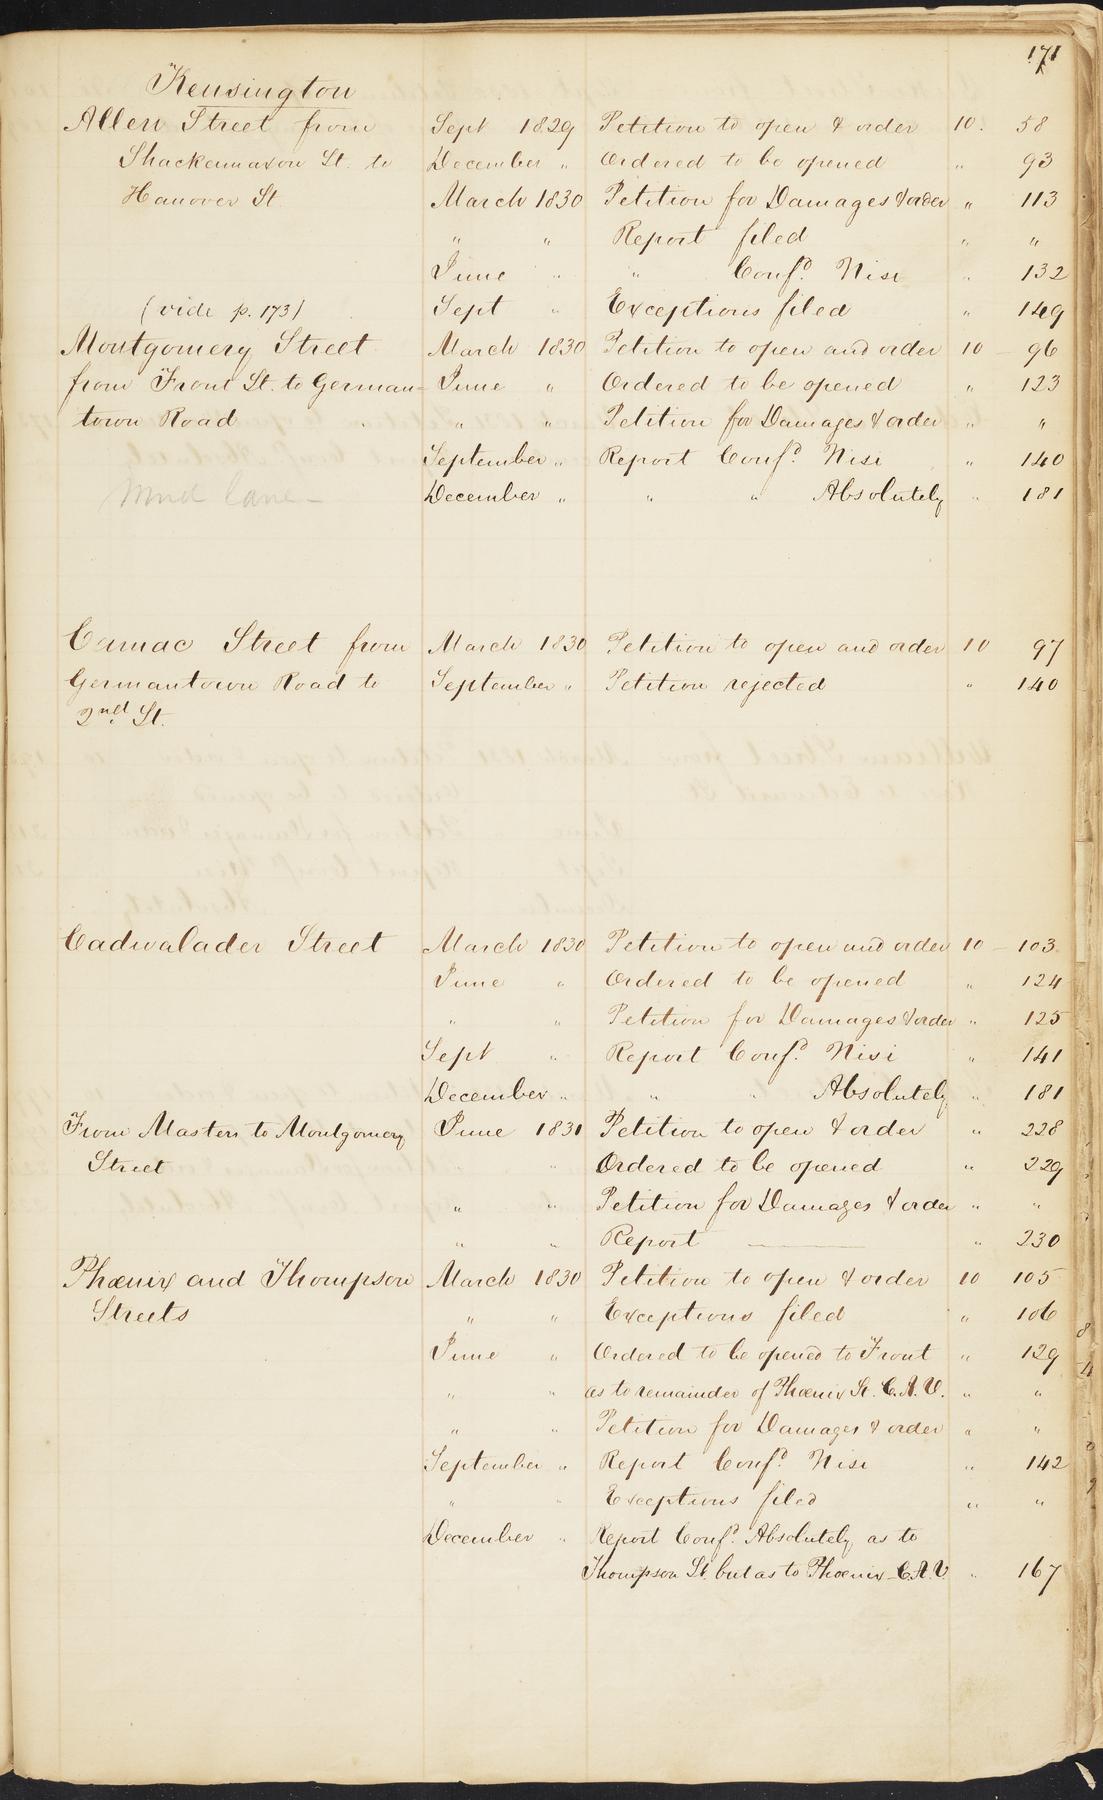 171
Kensington
Allen Street from Sept 1829 Petition to open & order 10. 58
Shackamaxon St. to December " Ordered to be opened " 93
Hanover St. March 1830 Petition for Damages & order " 113
" " Report filed " "
June " " Conf.d Nisi " 132
(vide p. 173) Sept " Exceptions filed " 149
Montgomery Street March 1830 Petition to open and order 10 - 96
from Front St. to German- June " Ordered to be opened " 123
town Road " " Petition for Damages & order " "
September " Report Conf.d Nisi " 140
Mud lane - December " " " Absolutely " 181
Camac Street from March 1830 Petition to open and order 10 97
Germantown Road to September " Petition rejected " 140
2nd St.
Cadwalader Street March 1830 Petition to open and order 10 - 103
June " Ordered to be opened " 124
" " Petition for Damages & order " 125
Sept " Report Conf.d Nisi " 141
December " " " Absolutely " 181
From Masters to Montgomery June 1831 Petition to open & order " 228
Street " " Ordered to be opened " 229
" " Petition for Damages & order " "
" " Report — " 230
Phœnix and Thompson March 1830 Petition to open & order 10 105
Streets " " Exceptions filed " 106
June " Ordered to be opened to Front " 129
" " as to remainder of Phœnix St. C.A.V. " "
" " Petition for Damages & order " "
September " Report Conf.d Nisi " 142
" " Exceptions filed " "
December " Report Conf.d Absolutely as to
Thompson St. but as to Phœnix - C.A.V. " 167